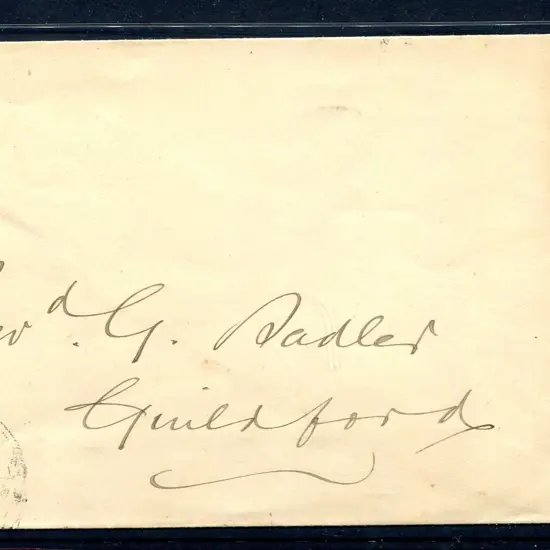 evd. G. Sadler
Guildford